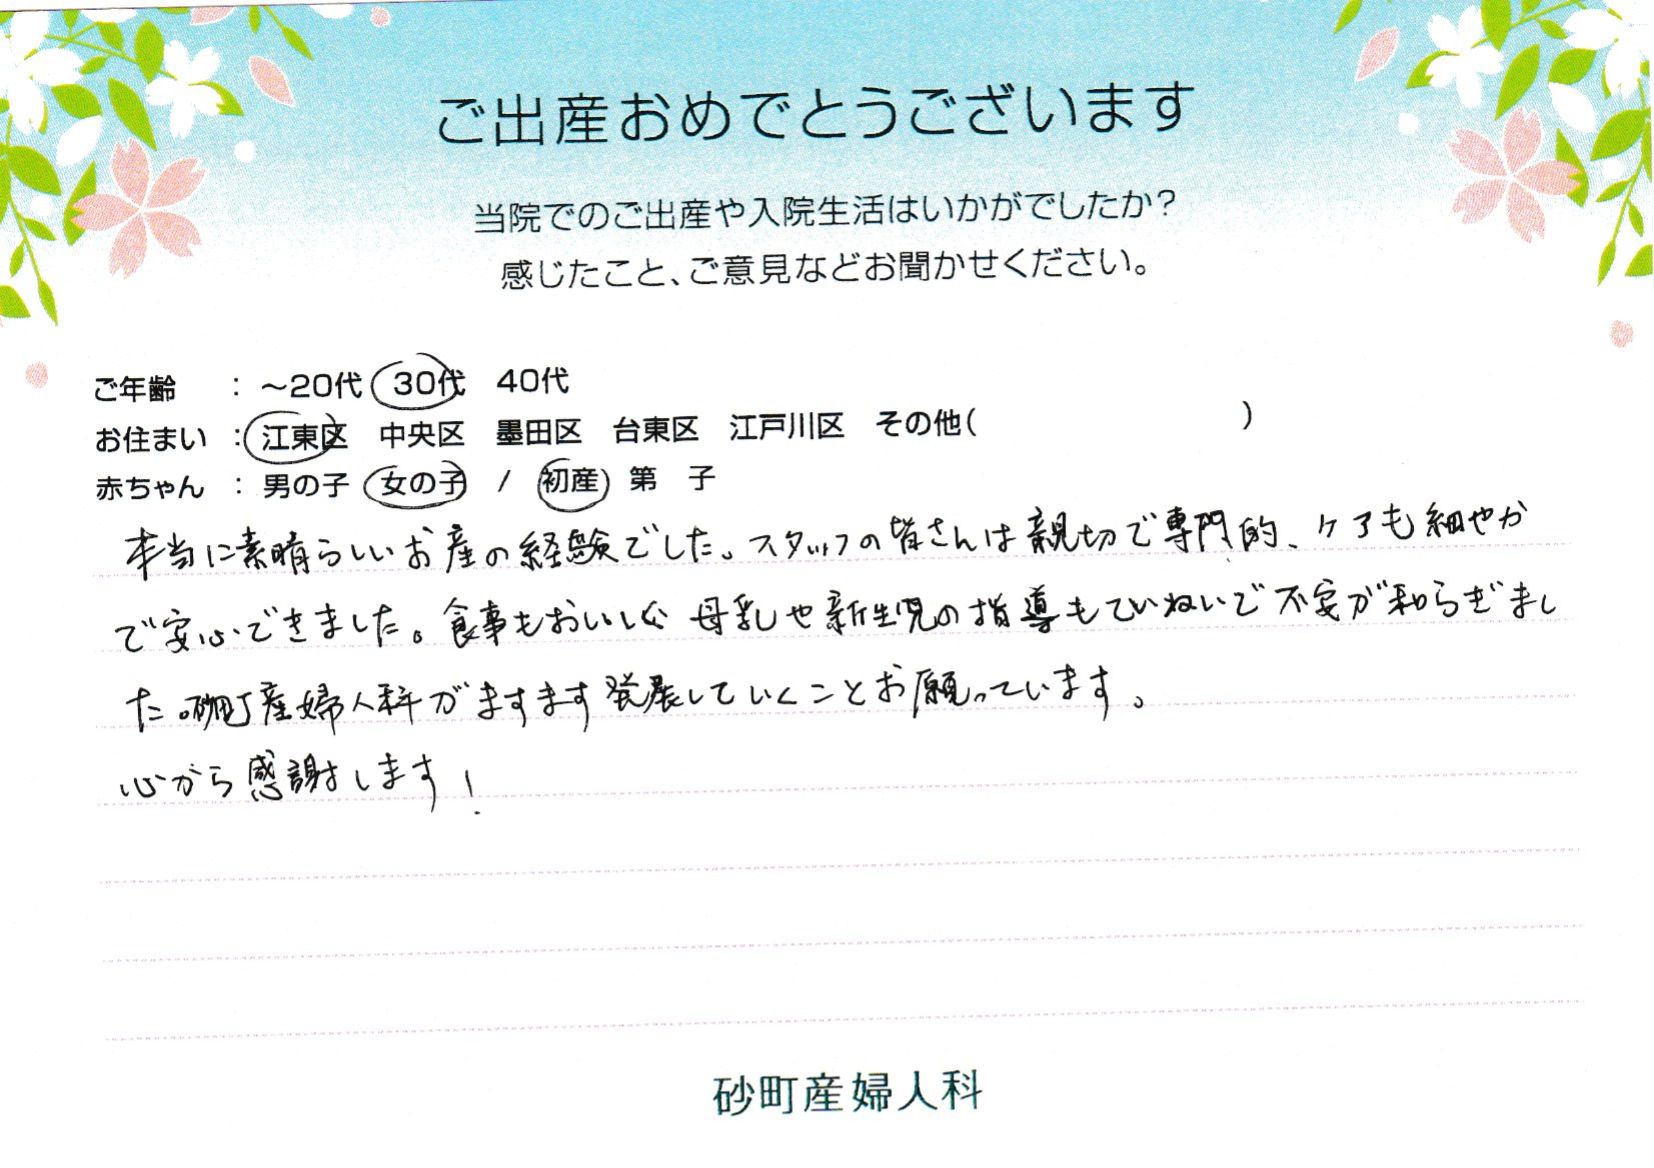 ご出産おめでとうございます
当院でのご出産や入院生活はいかがでしたか?
感じたこと、ご意見などお聞かせください。
ご年齢 : ~20代 30代 40代
お住まい : 江東区 中央区 墨田区 台東区 江戸川区 その他( )
赤ちゃん : 男の子 女の子 / 初産 第 子
本当に素晴らしいお産の経験でした。スタッフの皆さんは親切で専門的、ケアも細やか
で安心できました。食事もおいしく 母乳や新生児の指導もていねいで不安が和らぎまし
た。砂町産婦人科がますます発展していくことお願っています。
心から感謝します!
砂町産婦人科